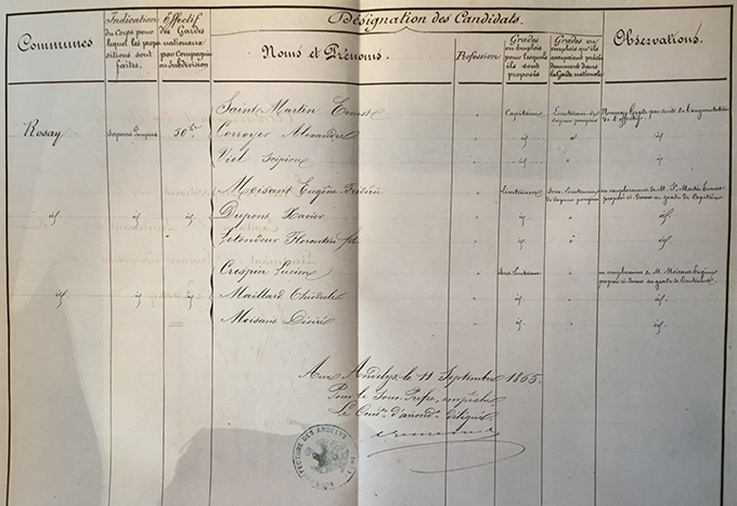 Communes
Indication
du Corps pour
lequel les propo
sitions sont
faites.
Effectif
des Gardes
nationaux
par Compagnie
ou Subdivision
Désignation des Candidats.
Noms et Prénoms.
Profession
Grades
ou Emplois
pour lesquels
ils sont
proposés
Grades ou
emplois qu'ils
occupaient précé
demment dans
la Garde nationale
Observations.
Saint Martin Ernest " Capitaine Lieutenant de
sapeurs pompiers
Nouveau Grade par suite de l'augmentation
de l'effectif.
Rosay Sapeurs Pompiers 50 hes Corroyer Alexandre " id " id
Viel Scipion " id " id
Moisant Eugène Frédéric " Lieutenant Sous-Lieutenant
de sapeurs pompiers
en remplacement de M. St Martin Ernest
proposé ci-dessus au grade de Capitaine
id id id Dupont Xavier " id " id
Letondeur Florentin fils " id " id
Crespin Lucien " Sous Lieutenant " en remplacement de M. Moisant Eugène
proposé ci-dessus au grade de Lieutenant.
id id id Maillard Théodule " id " id
Moisant Désiré " id " id
Aux Andelys, le 11 Septembre 1865.
Pour le Sous-Préfet, empêché
Le Cons. d'arrondt délégué